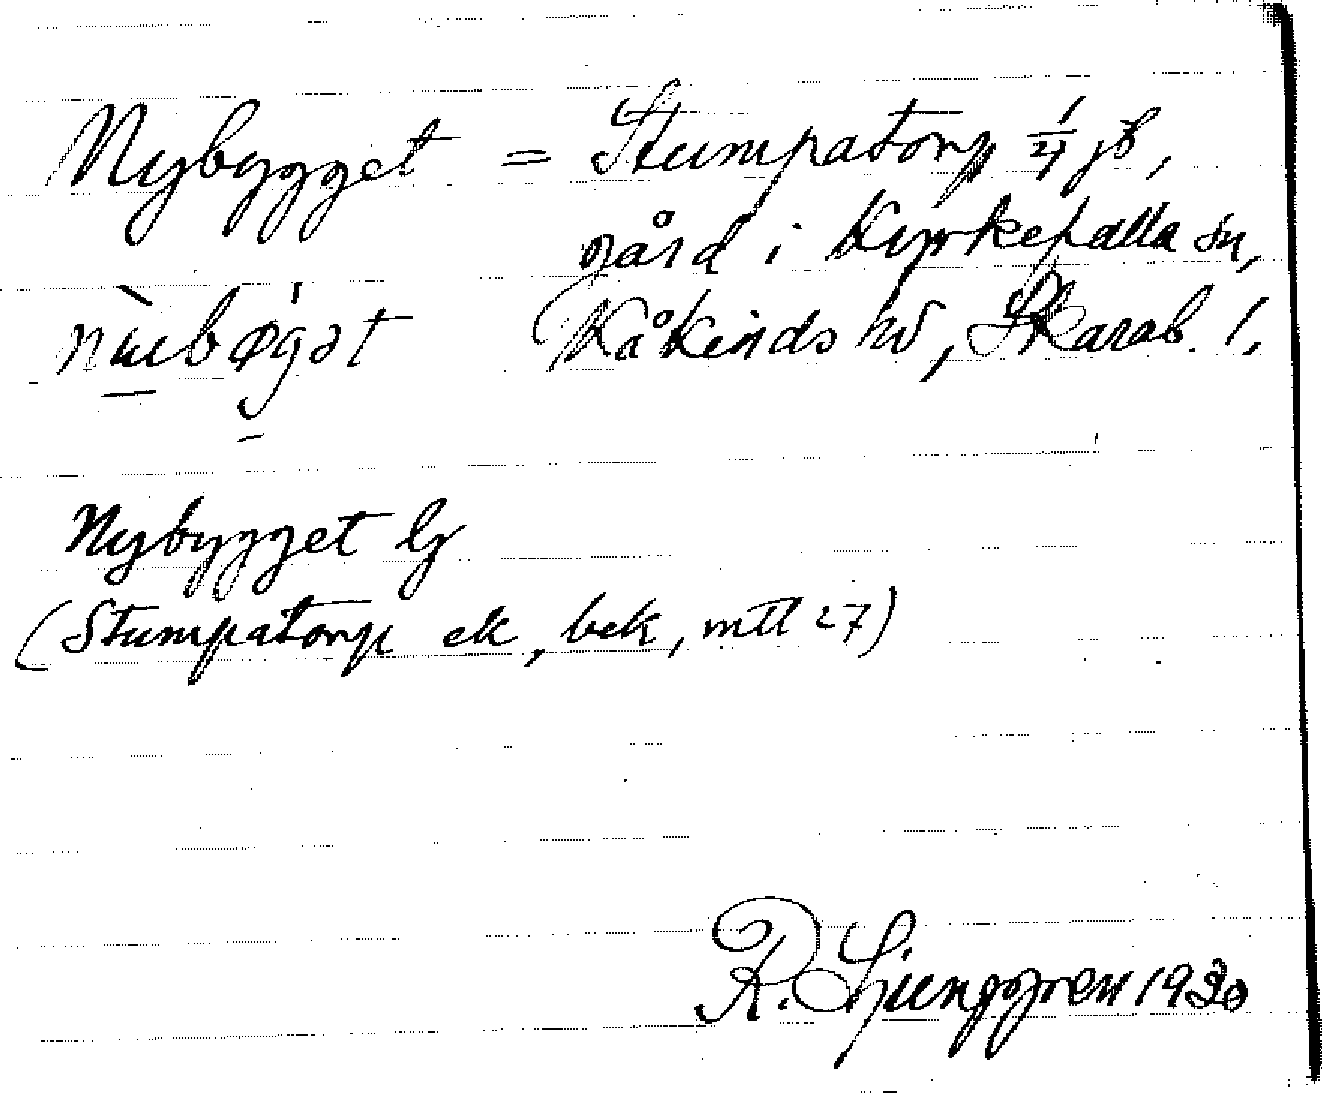 Nybygget = Stumpatorp 1/4 jb,
gård i Kyrkefalla sn,
Kåkinds hd, Skarab. l.
Nybygget lg
(Stumpatorp ek, bek, mtl 27)
R. Ljunggren 1930